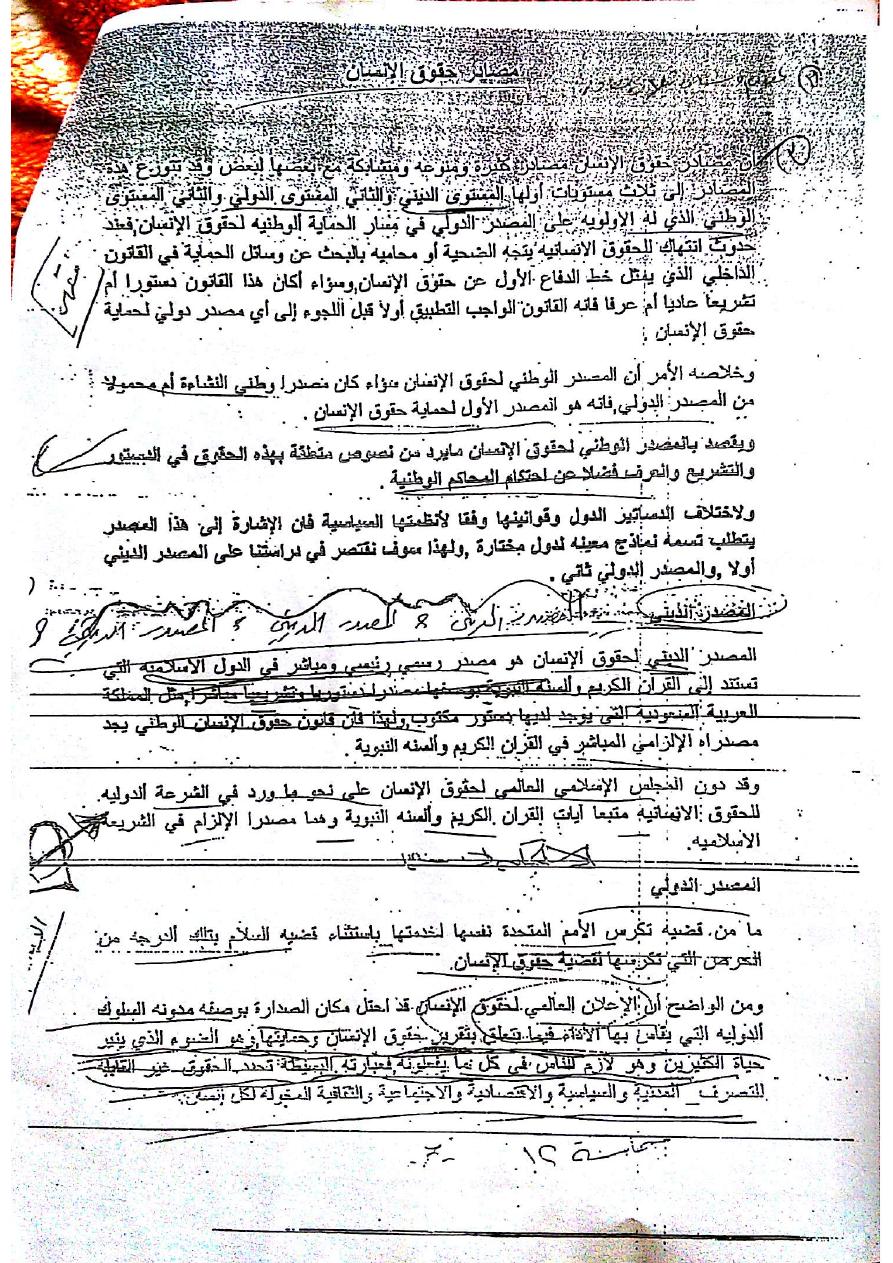 مصادر حقوق الإنسان
٢
أن مصادر حقوق الإنسان مصادر كثيرة ومنوعه ومتشابكة مع بعضها لبعض وقد تتوزع هذه
المصادر إلى ثلاث مستويات أولها المستوى الديني والثاني المستوى الدولي والثاني المستوى
الوطني الذي له الاولويه على المصدر الدولي في مسار الحماية الوطنيه لحقوق الإنسان,فعند
حدوث انتهاك للحقوق الانسانيه يتجه الضحية أو محاميه بالبحث عن وسائل الحماية في القانون
الداخلي الذي يمثل خط الدفاع الأول عن حقوق الإنسان,وسؤاء أكان هذا القانون دستورا أم
تشريعا عاديا أم عرفا فانه القانون الواجب التطبيق أولا قبل اللجوء إلى أي مصدر دولي لحماية
حقوق الإنسان .
وخلاصه الأمر أن المصدر الوطني لحقوق الإنسان سؤاء كان مصدرا وطني النشاءة أم محمولا
من المصدر الدولي,فانه هو المصدر الأول لحماية حقوق الإنسان .
ويقصد بالمصدر الوطني لحقوق الإنسان مايرد من نصوص متعلقة بهذه الحقوق في الدستور
والتشريع والعرف فضلا عن احتكام المحاكم الوطنية .
ولاختلاف الدساتير الدول وقوانينها وفقا لأنظمتها السياسية فان الإشارة إلى هذا المصدر
يتطلب تسمه نماذج معينه لدول مختارة ,ولهذا سوف نقتصر في دراستنا على المصدر الديني
أولا ,والمصدر الدولي ثاني .
المصدر الديني
المصدر الديني المصدر الديني
المصدر الديني لحقوق الإنسان هو مصدر رسمي رئيسي ومباشر في الدول الاسلاميه التي
تستند إلى القران الكريم والسنه النبوية بوصفها مصدرا دستوريا وتشريعيا مباشرا,مثل المملكة
العربية السعودية التي يوجد لديها دستور مكتوب,ولهذا فان قانون حقوق الإنسان الوطني يجد
مصدراه الإلزامي المباشر في القران الكريم والسنه النبوية .
وقد دون المجلس الإسلامي العالمي لحقوق الإنسان على نحو ما ورد في الشرعة الدوليه
للحقوق الانسانيه متبعا آيات القران الكريم والسنه النبوية وهما مصدرا الإلزام في الشريعة
الاسلاميه.
المصدر الدولي
ما من قضيه تكرس الأمم المتحدة نفسها لخدمتها باستثناء قضيه السلام بتلك الدرجه من
الحرص التي تكرسها لقضية حقوق الإنسان.
ومن الواضح أن الإعلان العالمي لحقوق الإنسان قد احتل مكان الصدارة بوصفه مدونه السلوك
الدوليه التي يقاس بها الأداء فيما يتعلق بتقرير حقوق الإنسان وحمايتها,وهو الضوء الذي ينير
حياة الكثيرين وهو لازم للناس في كل ما يفعلونه,فعبارته البسيطة تحدد الحقوق غير القابلة
للتصرف المدنية والسياسية والاقتصادية والاجتماعية والثقافية المخولة لكل إنسان.